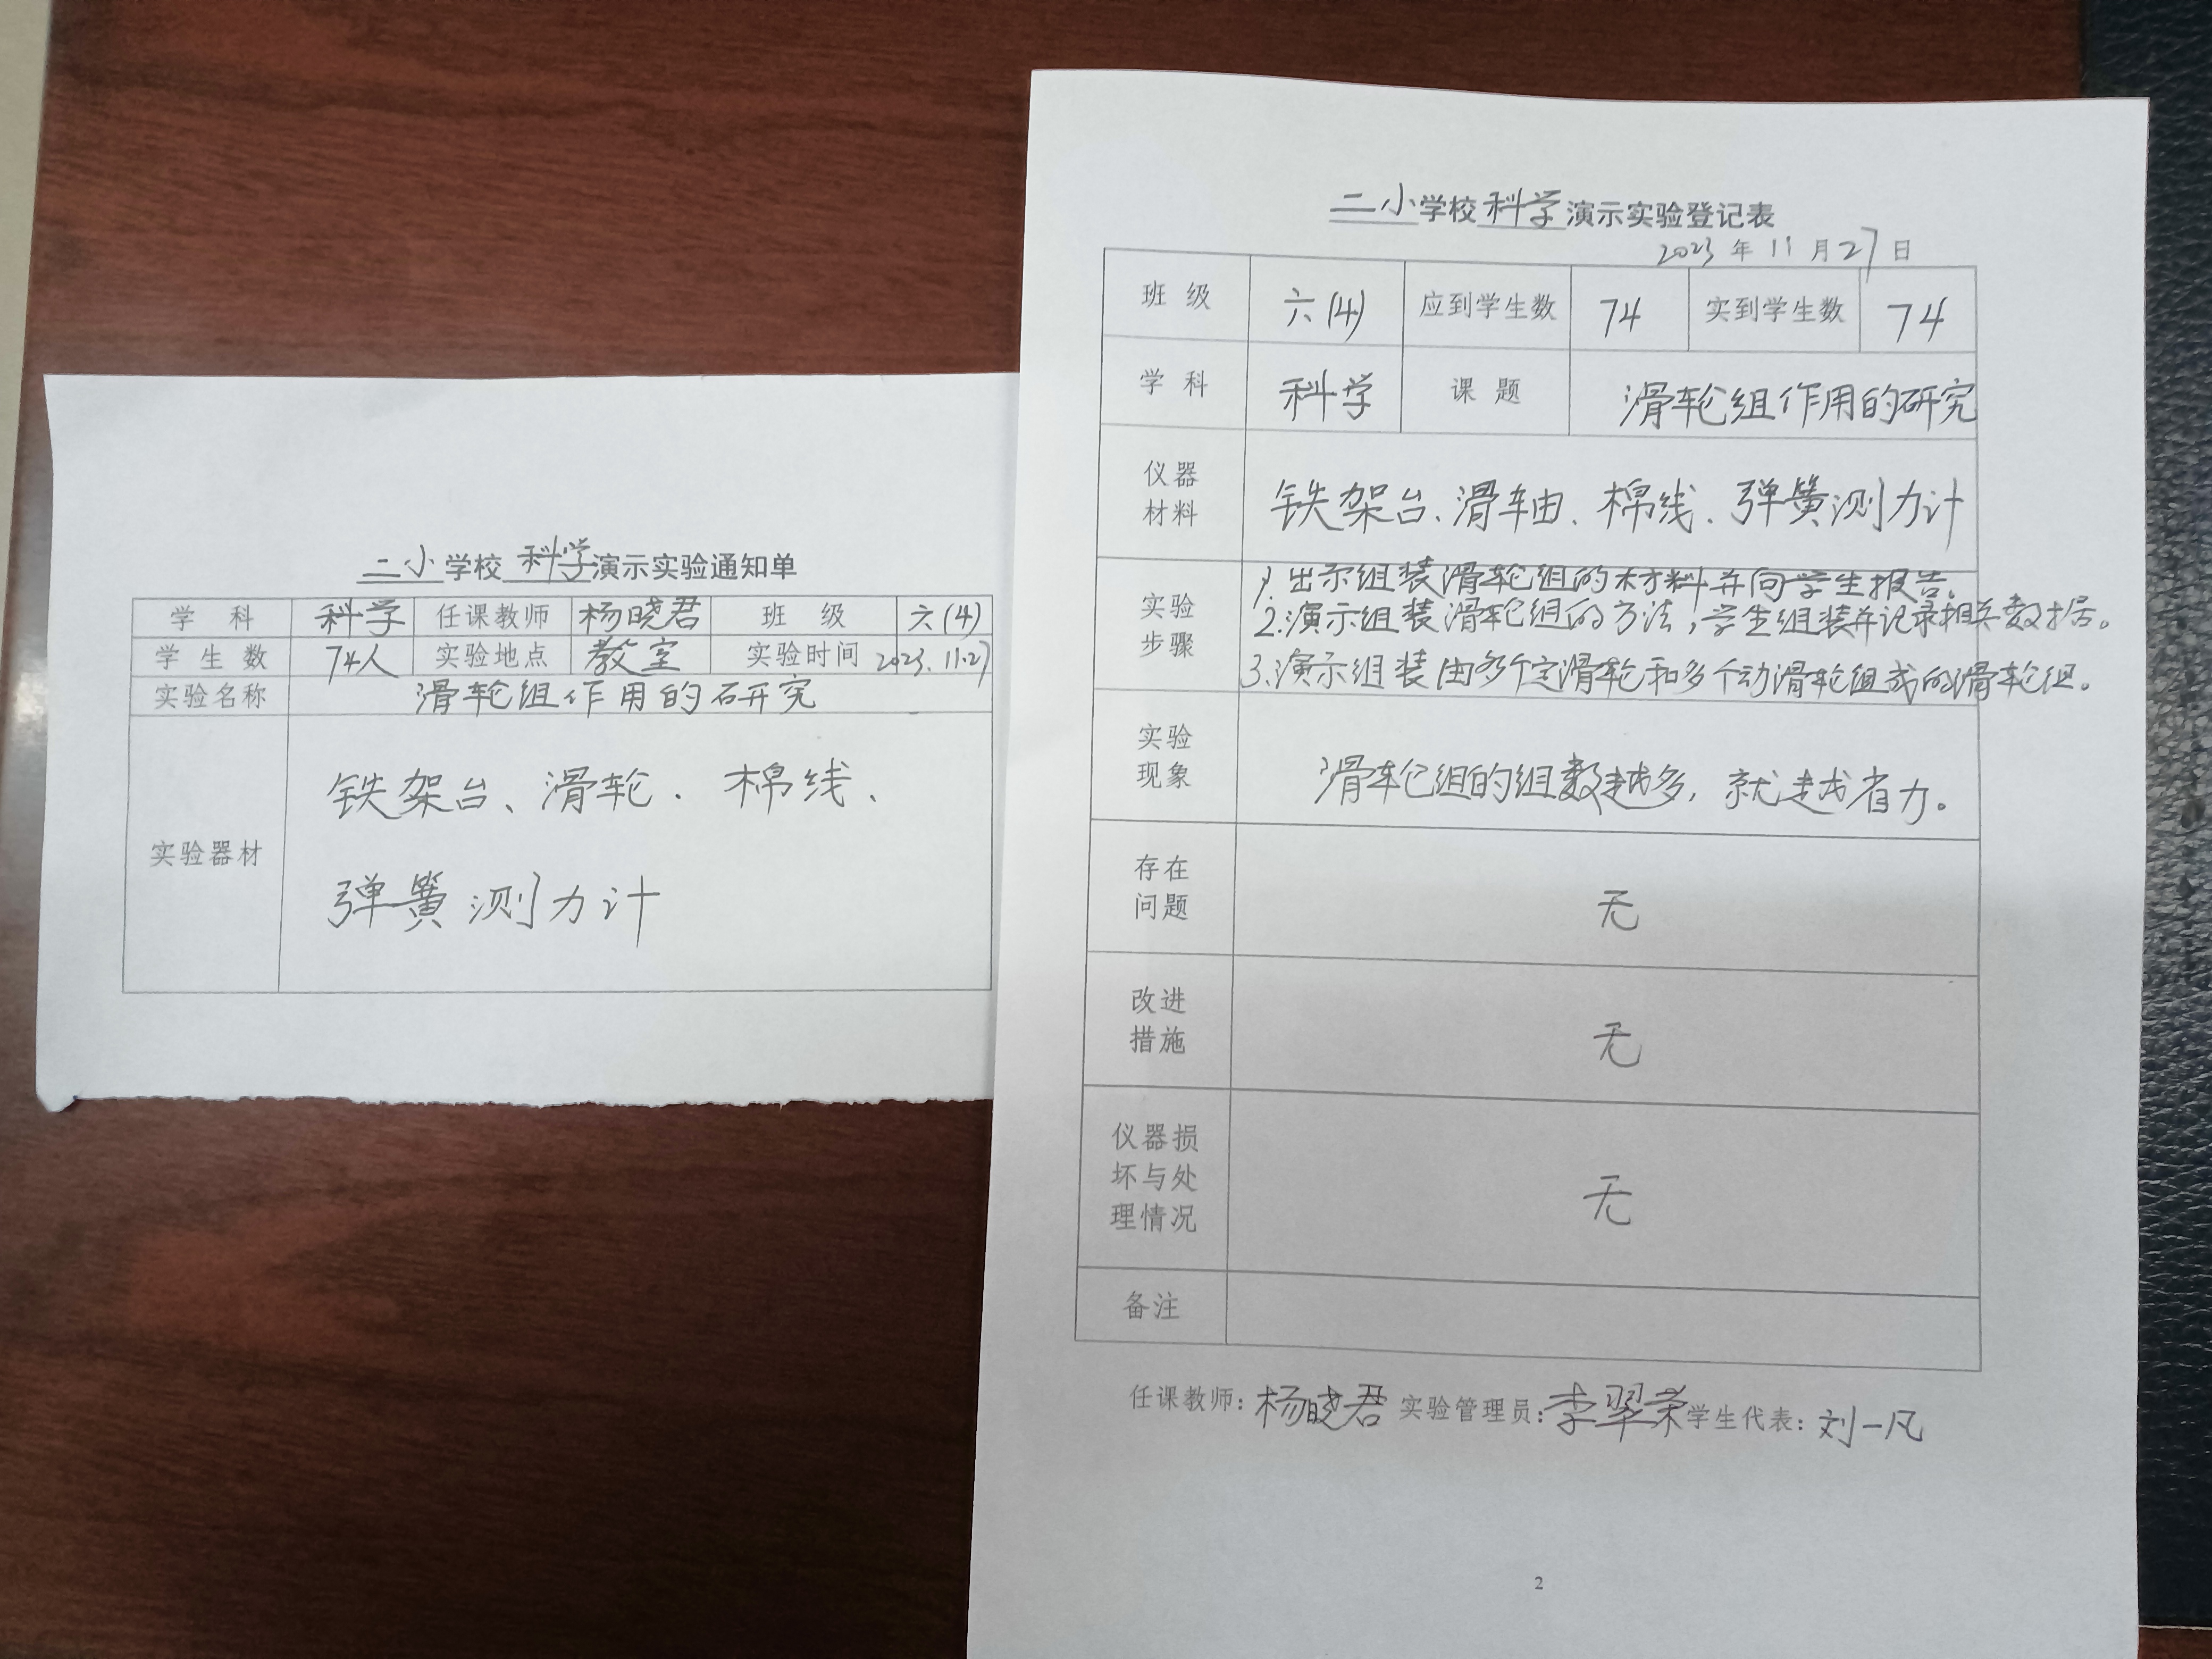 二小学校科学演示实验通知单
学科 科学 任课教师 杨晓君 班级 六(4)
学生数 74人 实验地点 教室 实验时间 2023.11.27
实验名称 滑轮组作用的研究
实验器材 铁架台、滑轮、棉线、
弹簧测力计
二小学校科学演示实验登记表
2023年11月27日
班级 六(4) 应到学生数 74 实到学生数 74
学科 科学 课题 滑轮组作用的研究
仪器材料 铁架台、滑轴、棉线、弹簧测力计
实验步骤 1.出示组装滑轮组的材料并向学生报告。
2.演示组装滑轮组的方法,学生组装并记录相关数据。
3.演示组装由多个定滑轮和多个动滑轮组成的滑轮组。
实验现象 滑轮组的组数越多,就越省力。
存在问题 无
改进措施 无
仪器损坏与处理情况 无
备注
任课教师:杨晓君 实验管理员:李翠荣 学生代表:刘一凡
2